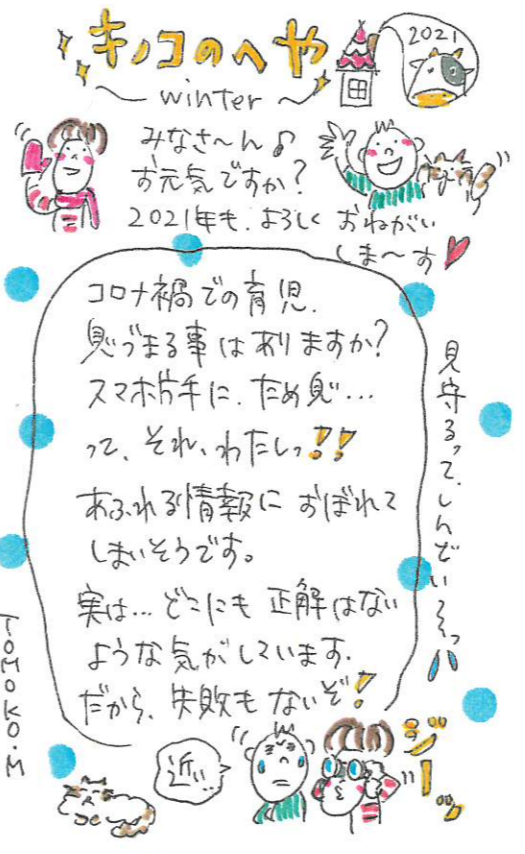 キノコのへや
2021
～ winter ～
みなさ～ん♪
お元気ですか?
2021年も、よろしく おねがい
しま～す
コロナ禍での育児、
息づまる事はありますか?
スマホ片手に、ため息…
って、それ、わたしっ!!
あふれる情報に おぼれて
しまいそうです。
実は… どこにも 正解はない
ような気がしています。
だから、失敗もないぞ!
見守るって、しんどい～っ
TOMOKO.M
近い…
ジーッ